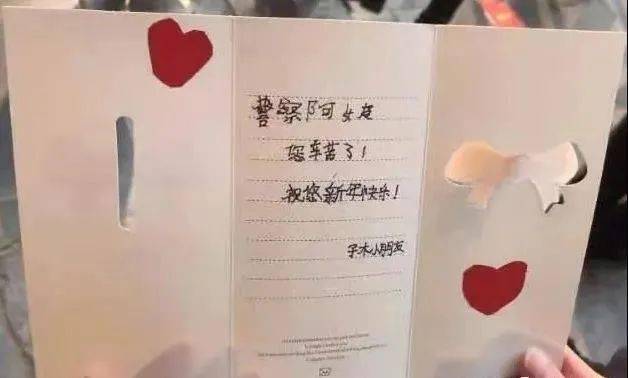 警察阿姨
您辛苦了!
祝您新年快乐!
子木小朋友